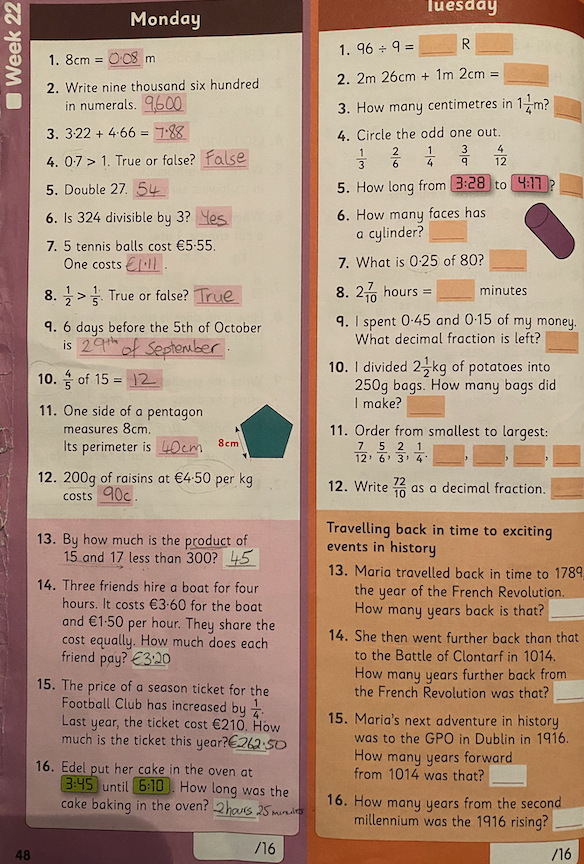 Week 22
Monday
1. 8cm = 0.08 m
2. Write nine thousand six hundred
in numerals. 9,600
3. 3·22 + 4·66 = 7.88
4. 0·7 > 1. True or false? False
5. Double 27. 54
6. Is 324 divisible by 3? Yes
7. 5 tennis balls cost €5·55.
One costs €1.11.
8. 1/2 > 1/5. True or false? True
9. 6 days before the 5th of October
is 29th of September.
10. 4/5 of 15 = 12
11. One side of a pentagon
measures 8cm.
Its perimeter is 40cm
8cm
12. 200g of raisins at €4·50 per kg
costs 90c.
13. By how much is the product of
15 and 17 less than 300? 45
14. Three friends hire a boat for four
hours. It costs €3·60 for the boat
and €1·50 per hour. They share the
cost equally. How much does each
friend pay? €3.20
15. The price of a season ticket for the
Football Club has increased by 1/4.
Last year, the ticket cost €210. How
much is the ticket this year? €262.50
16. Edel put her cake in the oven at
3:45 until 6:10. How long was the
cake baking in the oven? 2 hours 25 minutes
/16
48
Tuesday
1. 96 ÷ 9 = R
2. 2m 26cm + 1m 2cm =
3. How many centimetres in 1 1/4m?
4. Circle the odd one out.
1/3 2/6 1/4 3/9 4/12
5. How long from 3:28 to 4:17?
6. How many faces has
a cylinder?
7. What is 0·25 of 80?
8. 2 7/10 hours = minutes
9. I spent 0·45 and 0·15 of my money.
What decimal fraction is left?
10. I divided 2 1/2kg of potatoes into
250g bags. How many bags did
I make?
11. Order from smallest to largest:
7/12, 5/6, 2/3, 1/4. , , ,
12. Write 72/10 as a decimal fraction.
Travelling back in time to exciting
events in history
13. Maria travelled back in time to 1789
the year of the French Revolution.
How many years back is that?
14. She then went further back than that
to the Battle of Clontarf in 1014.
How many years further back from
the French Revolution was that?
15. Maria's next adventure in history
was to the GPO in Dublin in 1916.
How many years forward
from 1014 was that?
16. How many years from the second
millennium was the 1916 rising?
/16